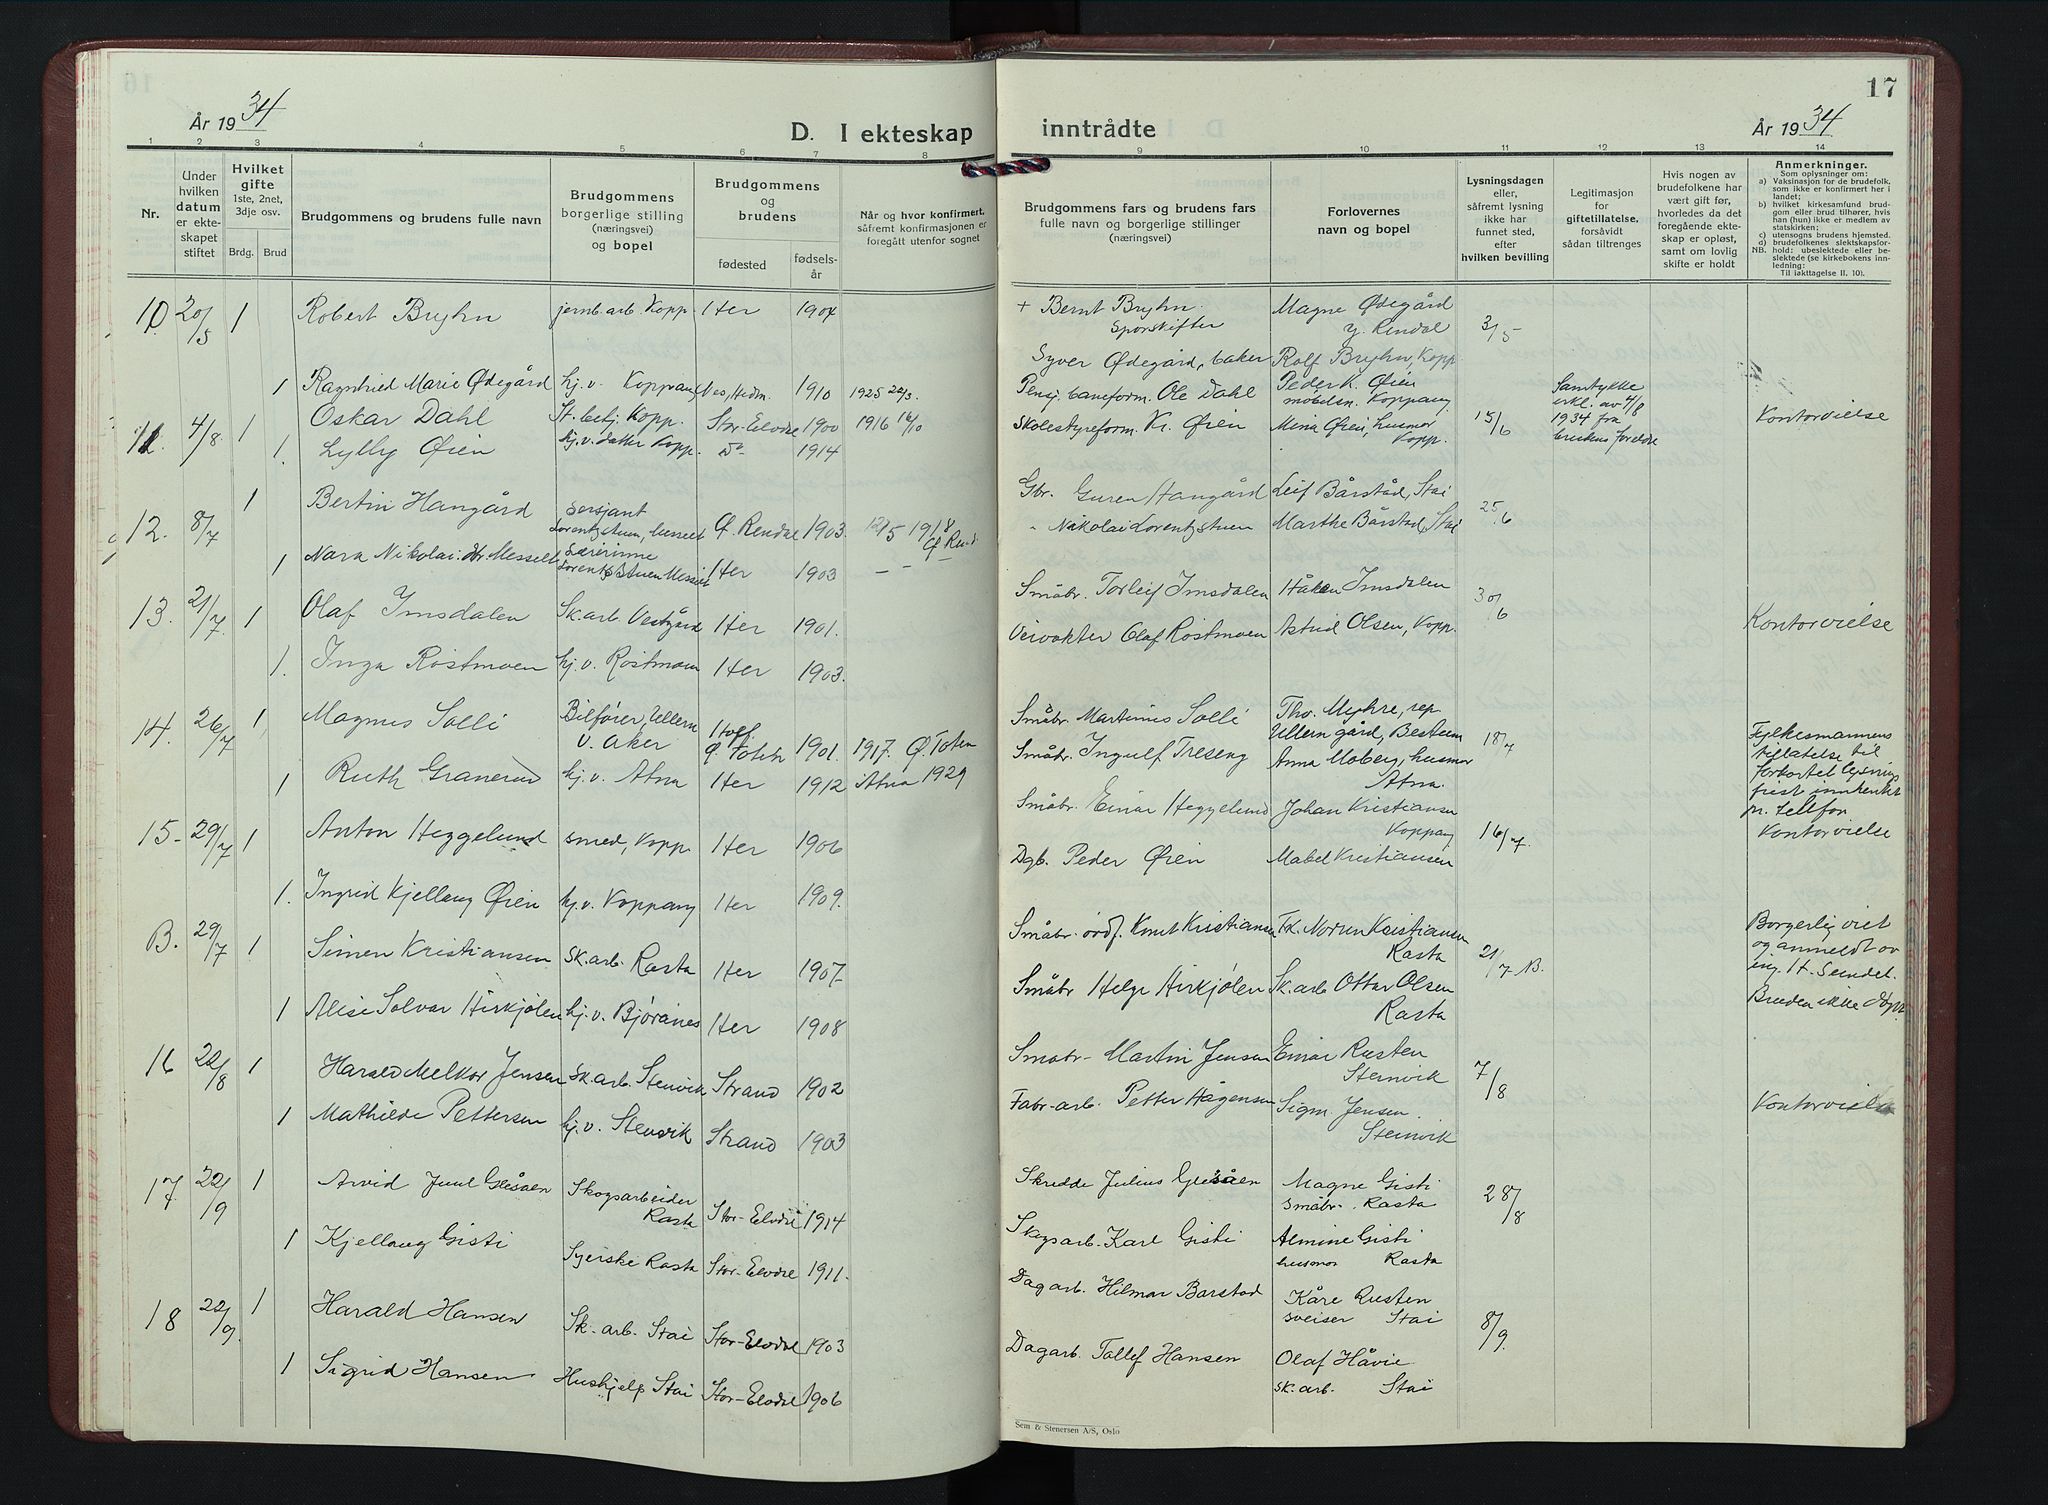 16
År 1934
D. I ekteskap
1 2 3 4 5 6 7 8
Nr.
Under hvilken datum er ekteskapet stiftet
Hvilket gifte 1ste, 2net, 3dje osv.
Brdg. Brud
Brudgommens og brudens fulle navn
Brudgommens borgerlige stilling (næringsvei) og bopel
Brudgommens og brudens
fødested fødselsår
Når og hvor konfirmert, såfremt konfirmasjonen er foregått utenfor sognet
10 20/5 1 Robert Bryhn jernb.arb. Kopp. Her 1904
1 Ragnhild Marie Ødegård hj.v. Koppang Nes, Hedm. 1910 1925
11. 4/8 1 Oskar Dahl St.betj. Kopp. Stor-Elvdal 1900 1916 16/10
1. Lylly Øien hj.v. datter Kopp. Do 1914
12. 8/7 1 Bertin Hangård sersjant Lorentzstuen, Messelt Ø. Rendal 1903. 12/5 1918 Ø. Rend.
1 Nara Nikolai.dtr. Messelt lærerinne Lorentzstuen Messelt Her 1903 – – –
13. 21/7 1 Olaf Imsdalen Sk.arb. Vestgård Her 1901.
1. Inga Røstmoen hj.v. Røstmoen Her 1903.
14. 26/7 1 Magnus Solli Bilfører, Ullern v. Aker Hoff Ø. Toten 1901. 1917. Ø. Toten
1 Ruth Granerud hj.v. Atna Her 1912 Atna 1929
15- 29/7 1 Anton Heggelund smed, Kopp. Her 1906
1. Ingrid Kjellaug Øien hj.v. Koppang Her 1909.
B. 29/7 1 Simen Kristiansen sk.arb. Rasta Her 1907.
1 Alise Solvor Hirkjølen hj.v. Bjøranes Her 1908
16 22/8 1 Harald Melkor Jensen sk.arb. Stenvik Strand 1902
1 Mathilde Pettersen hj.v. Stenvik Strand 1903
17 22/9 1 Arvid Juul Glesåen Skogsarbeider Rasta Stor-Elvdal 1914
1 Kjellaug Gisti Syerske Rasta Stor-Elvdal 1911.
18 22/9. 1 Harald Hansen Sk.arb. Stai Stor-Elvdal 1903
1 Sigrid Hansen Hushjelp Stai Stor-Elvdal 1906
17
inntrådte
År 1934
9 10 11 12 13 14
Brudgommens fars og brudens fars fulle navn og borgerlige stillinger (næringsvei)
Forlovernes navn og bopel
Lysningsdagen eller, såfremt lysning ikke har funnet sted, efter hvilken bevilling
Legitimasjon for giftetillatelse, forsåvidt sådan tiltrenges
Hvis nogen av brudefolkene har vært gift før, hvorledes da det foregående ekteskap er opløst, samt om lovlig skifte er holdt
Anmerkninger.
Som oplysninger om:
a) Vaksinasjon for de brudefolk, som ikke er konfirmert her i landet;
b) hvilket kirkesamfund brudgom eller brud tilhører, hvis han (hun) ikke er medlem av statskirken;
c) utensogns brudens hjemsted.
d) brudefolkenes slektskapsforhold: ubeslektede eller beslektede (se kirkebokens innledning:
NB.
Til iakttagelse II. 10).
+ Bernt Bryhn Sporskifter Magne Ødegård Y. Rendal 3/5
Syver Ødegård, baker Rolf Bryhn, Kopp.
Pensj. baneform. Ole Dahl Peder K. Øien Koppang 15/6 Samtykke erkl. av 4/8 1934 fra brudens foreldre Kontorvielse
Skolestyreform. Kr. Øien Mena Øien, husmor Kopp.
Gbr. Guren Hangård Leif Bårstad, Stai 25/6
" Nikolai Lorentzstuen Marthe Bårstad, Stai
Småbr. Torleif Imsdalen Håken Imsdalen 30/6 Kontorvielse
Veivokter Olaf Røstmoen Astrid Olsen, Kopp.
Småbr. Martinus Solli Tho. Myhre, rep. Ullern gård, Bestum 18/7 Fylkesmannens tillatelse til forkortet lysningsfrist innhentet pr. telefon
Småbr. Ingulf Treseng Anna Moberg, husmor Atna.
Småbr. Einar Heggelund Johan Kristiansen Koppang 16/7. Kontorvielse
Dgb. Peder Øien Mabel Kristiansen
Småbr. Knut Kristiansen Norun Kristiansen Rasta 21/7 B. Borgerlig viet og anmeldt av ing. H. Sundet. Bruden ikke døpt
Småbr Helge Hirkjølen Sk.arb Ottar Olsen Rasta
Småbr- Martin Jensen Einar Rusten Stenvik 7/8 Kontorvielse
Fabr-arb. Petter Hågensen Sigm. Jensen. Stenvik
Skredder Julius Glesåen Magne Gisti småbr. Rasta 28/8
Skogsarb. Karl Gisti Almine Gisti husmor Rasta
Dagarb. Hilmar Barstad Kåre Rusten sveiser Stai 8/9.
Dagarb. Tollef Hansen Olaf Håvie sk.arb. Stai
Sem & Stenersen A/S, Oslo